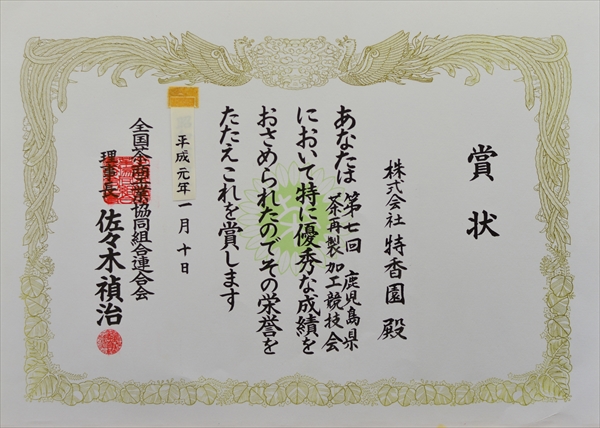 賞状
株式会社 特香園 殿
あなたは第七回 鹿児島県
茶再製加工競技会
において特に優秀な成績を
おさめられたのでその栄誉を
たたえこれを賞します
平成元年一月十日
全国茶商工業協同組合連合会
理事長 佐々木禎治